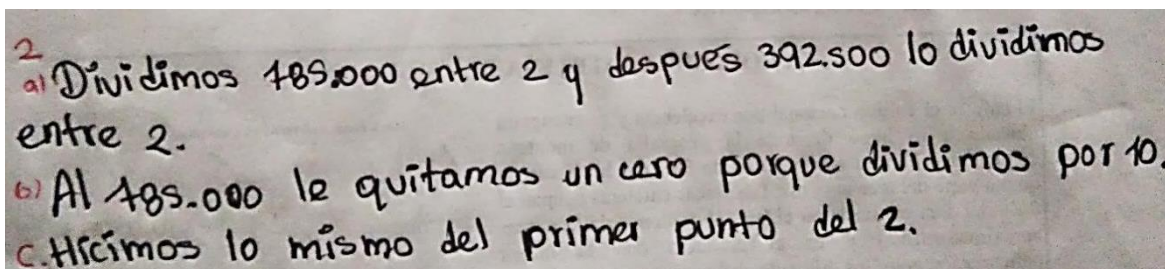 2
a) Dividimos 785.000 entre 2 y después 392.500 lo dividimos
entre 2.
b) Al 785.000 le quitamos un cero porque dividimos por 10.
c. Hicimos lo mismo del primer punto del 2.